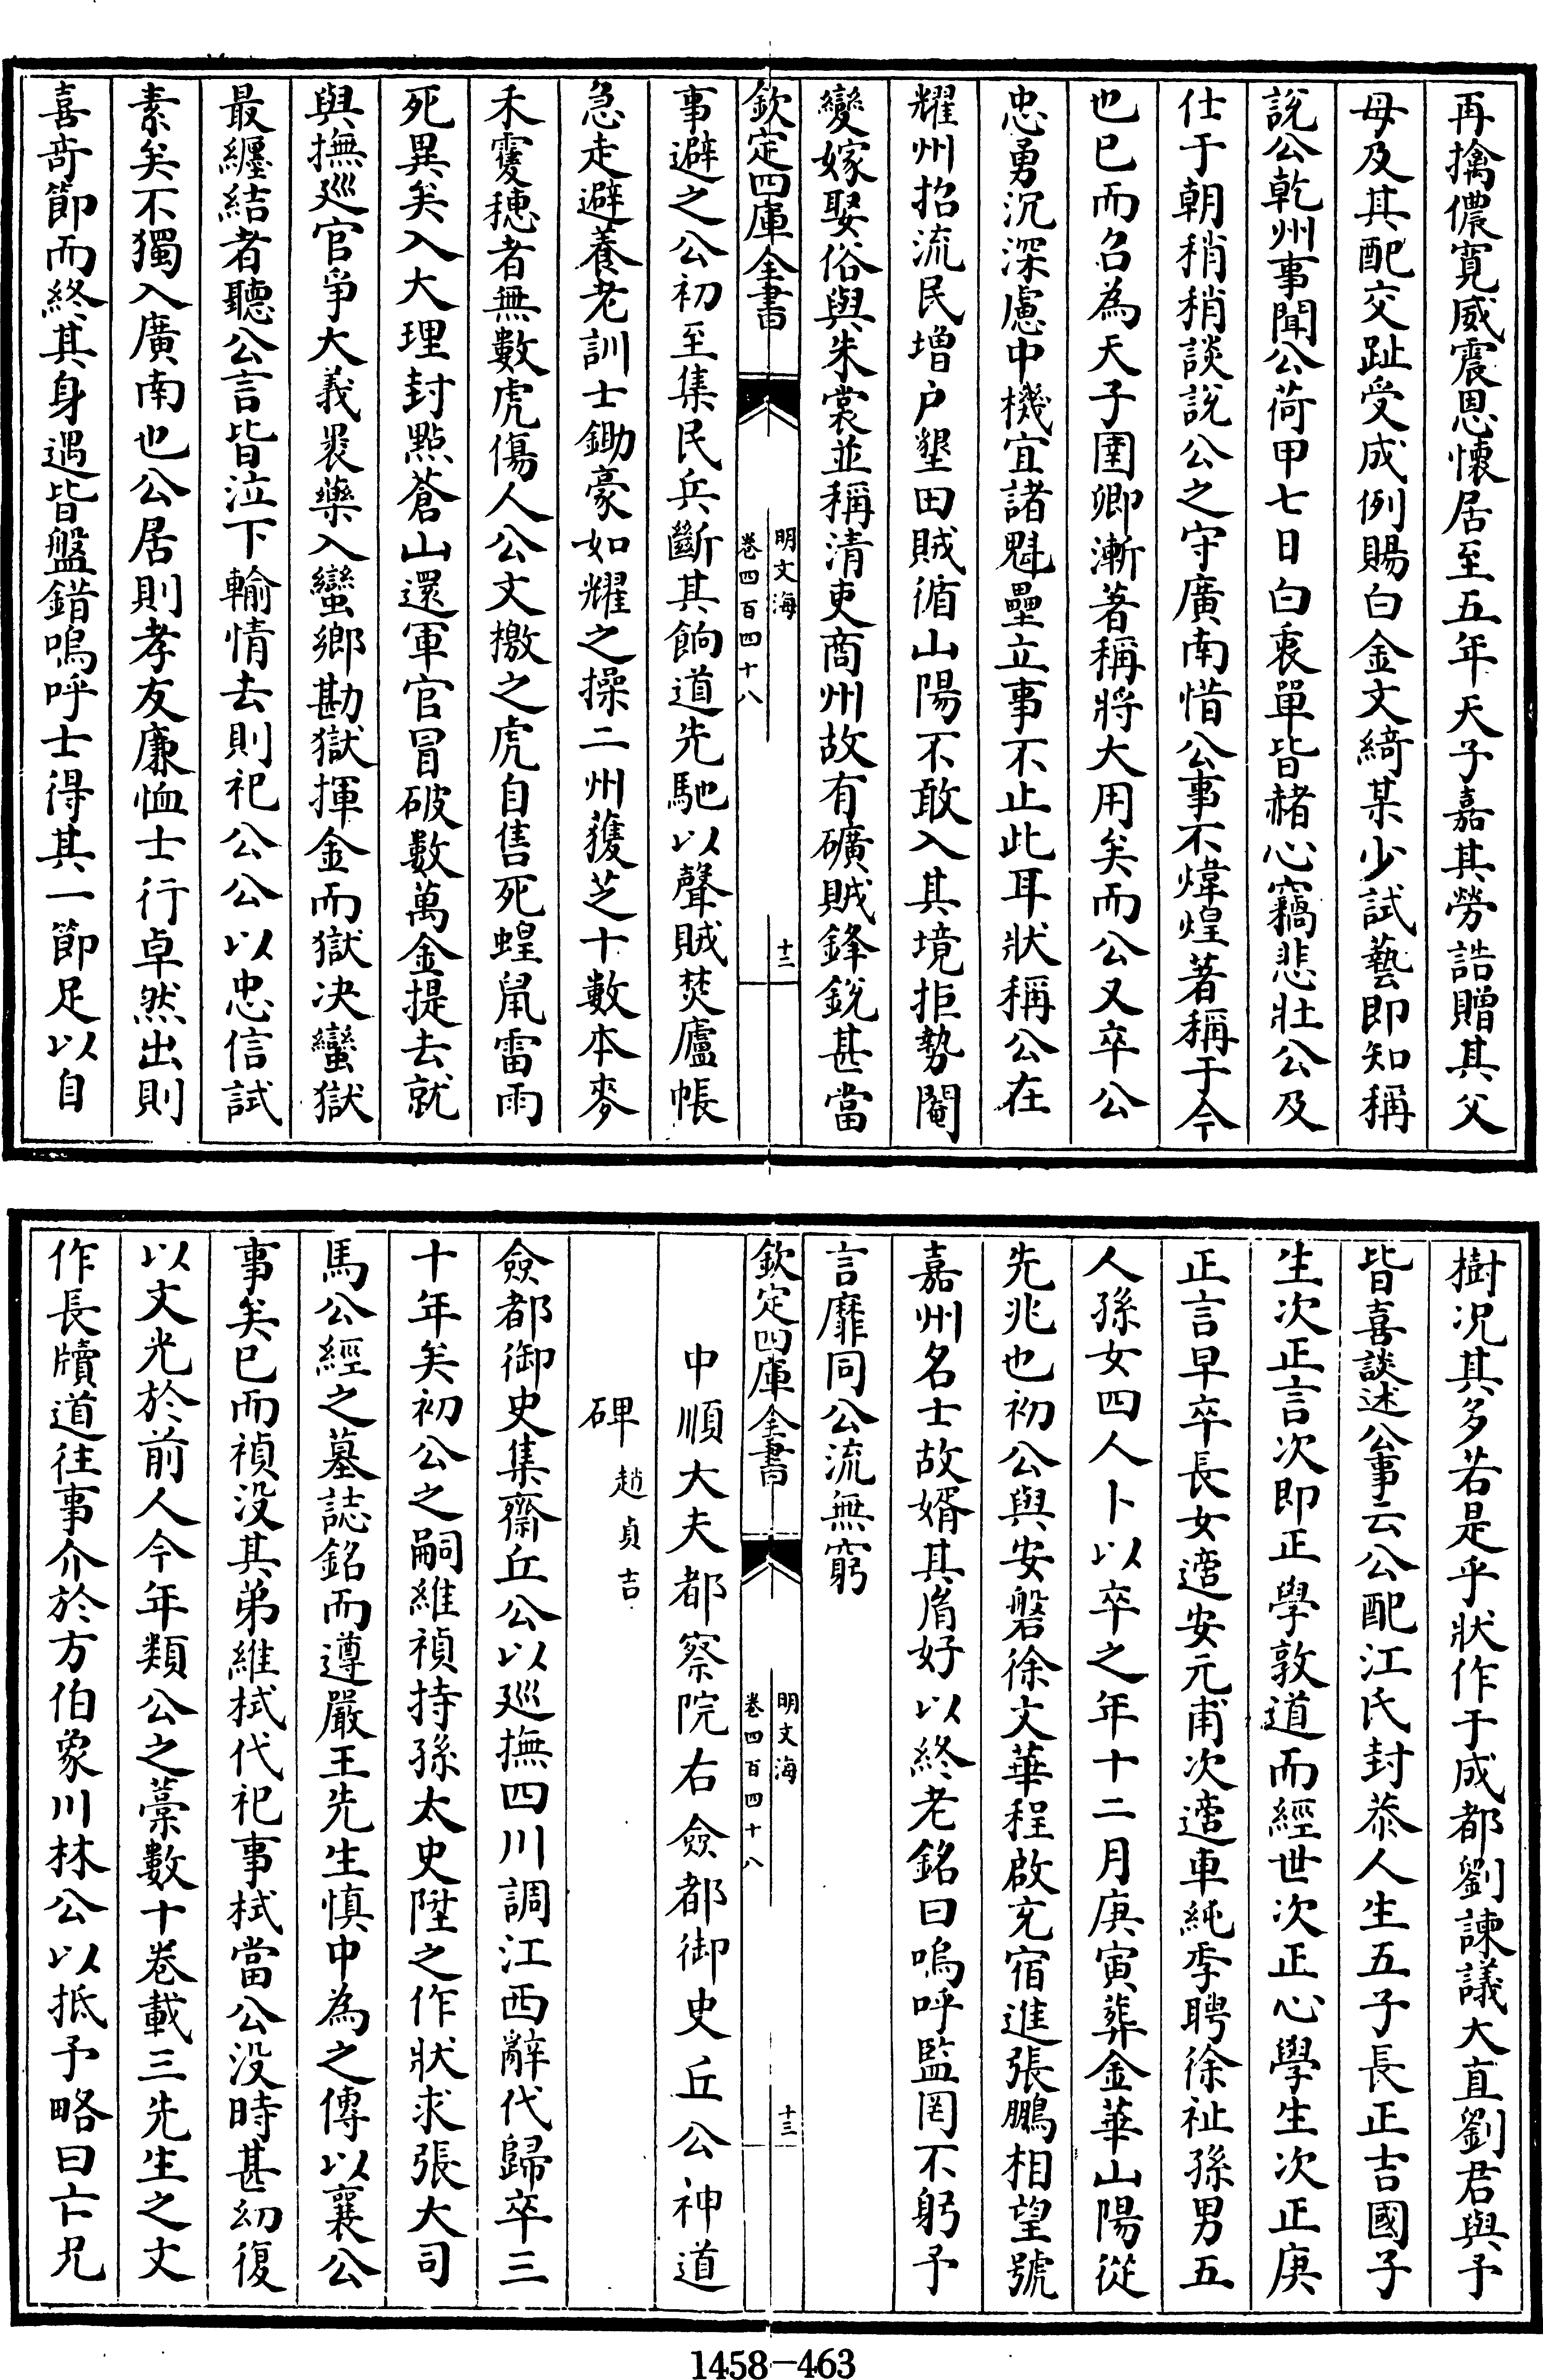 再擒儂寛威震恩懷居至五年天子嘉其勞誥贈其父
母及其配交趾受成例賜白金文綺某少試藝即知稱
説公乾州事聞公荷甲七日白衷單皆赭心竊悲壯公及
仕于朝稍稍談説公之守廣南惜公事不煒煌著稱于今
也已而名為天子圉卿漸著稱將大用矣而公又卒公
忠勇沉深慮中機宜諸魁壘立事不止此耳狀稱公在
耀州招流民增户墾田賊循山陽不敢入其境拒勢閹
變嫁娶俗與朱裳並稱清吏商州故有礦賊鋒銳甚當
欽定四庫全書
明文海
卷四百四十八
十二
事避之公初至集民兵斷其餉道先馳以聲賊焚廬帳
急走避養老訓士鋤豪如耀之操二州蒦芝十數本麥
禾䨥穗者無數虎傷人公文檄之虎自售死蝗鼠雷雨
死異矣入大理封點蒼山還軍官冒破數萬金提去就
與撫廵官爭大義裹藥入蠻鄉勘獄揮金而獄决蠻獄
最纏結者聽公言皆泣下輸情去則祀公公以忠信試
素矣不獨入廣南也公居則孝友廉恤士行卓然出則
喜竒節而終其身遇皆盤錯嗚呼士得其一節足以自
樹况其多若是乎狀作于成都劉諫議大直劉君與予
皆喜談述公事云公配江氏封恭人生五子長正吉國子
生次正言次即正學敦道而經世次正心學生次正庚
正言早卒長女適安元甫次適車純季聘徐祉孫男五
人孫女四人卜以卒之年十二月庚寅葬金華山陽從
先兆也初公與安磐徐文華程啟充宿進張鵬相望號
嘉州名士故婿其胤好以終老銘曰嗚呼監罔不躬予
言靡同公流無窮
欽定四庫全書
明文海
卷四百四十八
十三
中順大夫都察院右僉都御史丘公神道
碑 趙貞吉
僉都御史集齋丘公以廵撫四川調江西辭代歸卒三
十年矣初公之嗣維禎持孫太史陞之作狀求張大司
馬公經之墓誌銘而遵嚴王先生慎中為之傳以襄公
事矣已而禎没其弟維栻代祀事栻當公没時甚幼復
以文光於前人今年類公之藁數十卷載三先生之文
作長牘道往事介於方伯象川林公以抵予略曰亡兄
1458-463